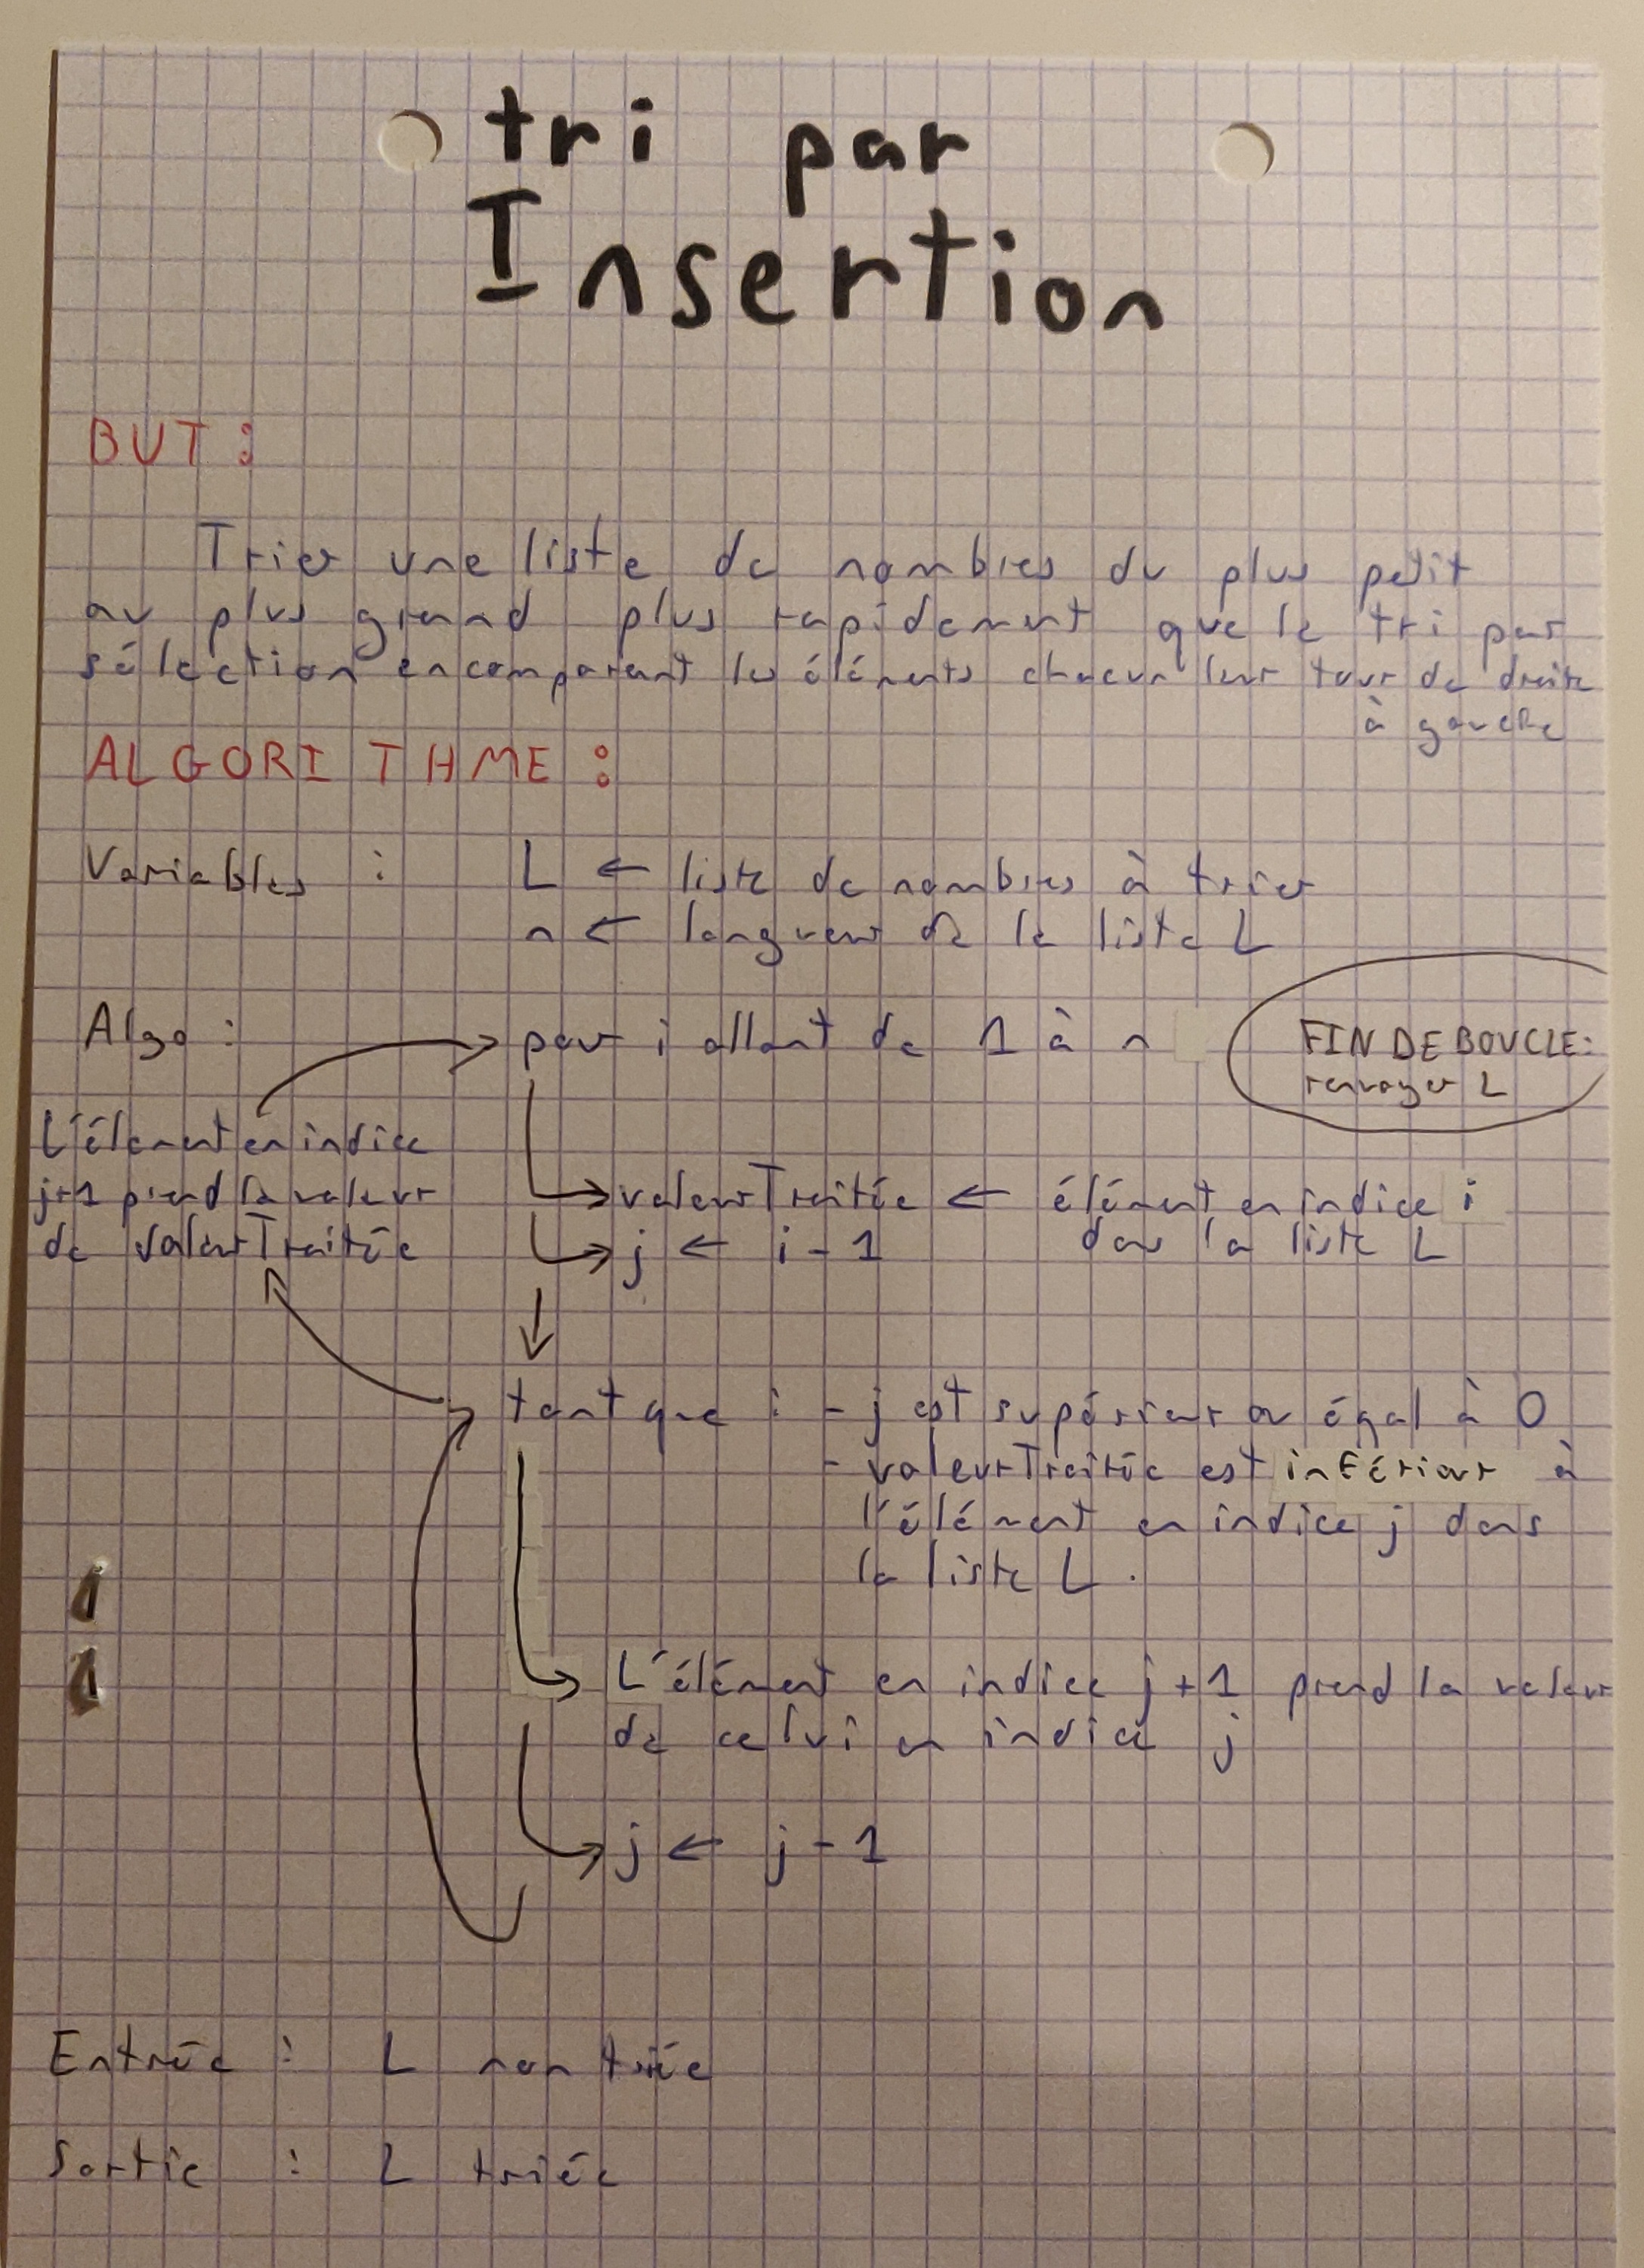 tri par
Insertion
BUT :
Trier une liste de nombres du plus petit
au plus grand plus rapidement que le tri par
sélection en comparant les éléments chacun leur tour de droite
à gauche
ALGORITHME :
Variables : L ← liste de nombres à trier
n ← longueur de la liste L
Algo : pour i allant de 1 à n
FIN DE BOUCLE :
renvoyer L
L'élément en indice
j+1 prend la valeur
de valeurTraitée
valeurTraitée ← élément en indice i
dans la liste L
j ← i - 1
tant que : - j est supérieur ou égal à 0
- valeurTraitée est inférieur à
l'élément en indice j dans
la liste L.
L'élément en indice j+1 prend la valeur
de celui en indice j
j ← j - 1
Entrée : L non triée
Sortie : L triée